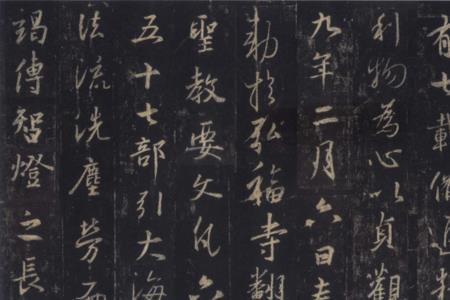 有七載備通釋
利物為心以貞觀
九年二月六日奉
勅於弘福寺翻
聖教要文凡六
五十七部引大海
法流洗塵勞而
竭傳智燈之長